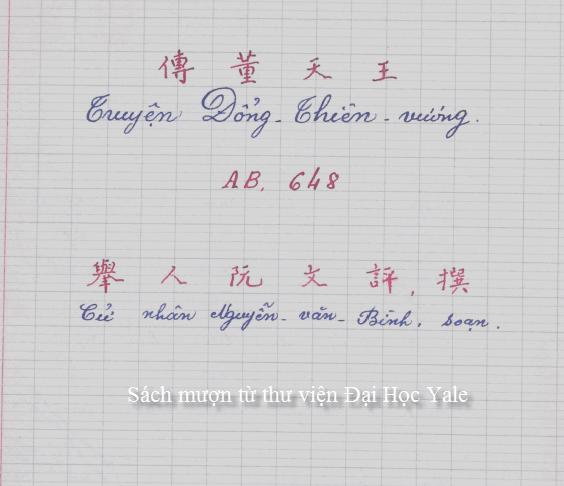 傳董天王
Truyện Đổng-Thiên-vương.
AB. 648
舉人阮文評, 撰
Cử nhân Nguyễn-văn-Bình, soạn.
Sách mượn từ thư viện Đại Học Yale